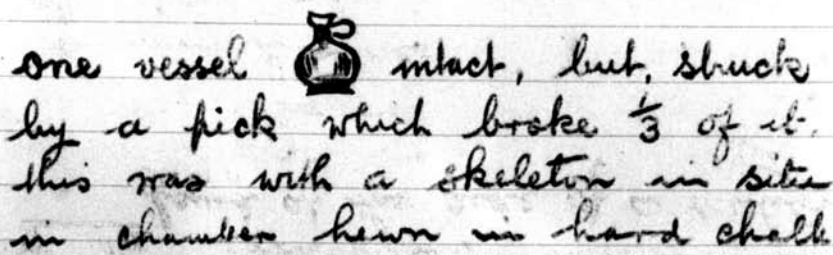 one vessel intact, but, struck
by a pick which broke 1/3 of it.
this was with a skeleton in situ
in chamber hewn in hard chalk